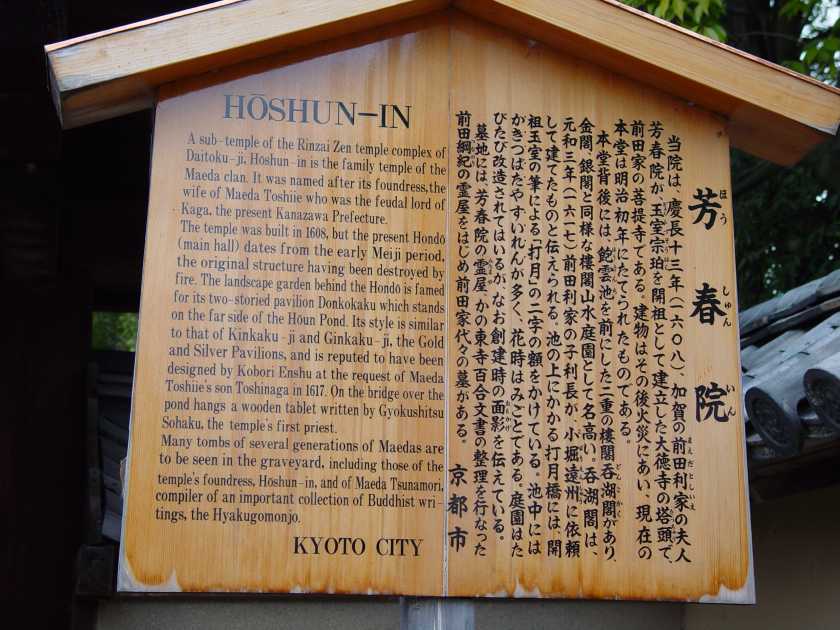 HŌSHUN-IN
A sub-temple of the Rinzai Zen temple complex of
Daitoku-ji, Hoshun-in is the family temple of the
Maeda clan. It was named after its foundress, the
wife of Maeda Toshiie who was the feudal lord of
Kaga, the present Kanazawa Prefecture.
The temple was built in 1608, but the present Hondō
(main hall) dates from the early Meiji period,
the original structure having been destroyed by
fire. The landscape garden behind the Hondō is famed
for its two-storied pavilion Donkokaku which stands
on the far side of the Hōun Pond. Its style is similar
to that of Kinkaku-ji and Ginkaku-ji, the Gold
and Silver Pavilions, and is reputed to have been
designed by Kobori Enshu at the request of Maeda
Toshiie's son Toshinaga in 1617. On the bridge over the
pond hangs a wooden tablet written by Gyokushitsu
Sohaku, the temple's first priest.
Many tombs of several generations of Maedas are
to be seen in the graveyard, including those of the
temple's foundress, Hoshun-in, and of Maeda Tsunamori,
compiler of an important collection of Buddhist wri-
tings, the Hyakugomonjo.
KYOTO CITY
芳春院
ほう しゅん いん
当院は、慶長十三年(一六〇八)、加賀の前田利家の夫人
芳春院が、玉室宗珀を開祖として建立した大徳寺の塔頭で、
前田家の菩提寺である。建物はその後火災にあい、現在の
本堂は明治初年にたてられたものである。
本堂背後には、飽雲池を前にした二重の楼閣呑湖閣があり、
金閣、銀閣と同様な楼閣山水庭園として名高い。呑湖閣は、
元和三年(一六一七)前田利家の子利長が、小堀遠州に依頼
して建てたものと伝えられる。池の上にかかる打月橋には、開
祖玉室の筆による「打月」の二字の額をかけている。池中には
かきつばたやすいれんが多く、花時はみごとである。庭園はた
びたび改造されてはいるが、なお創建時の面影を伝えている。
墓地には、芳春院の霊屋、かの東寺百合文書の整理を行なった
前田綱紀の霊屋をはじめ前田家代々の墓がある。
京都市